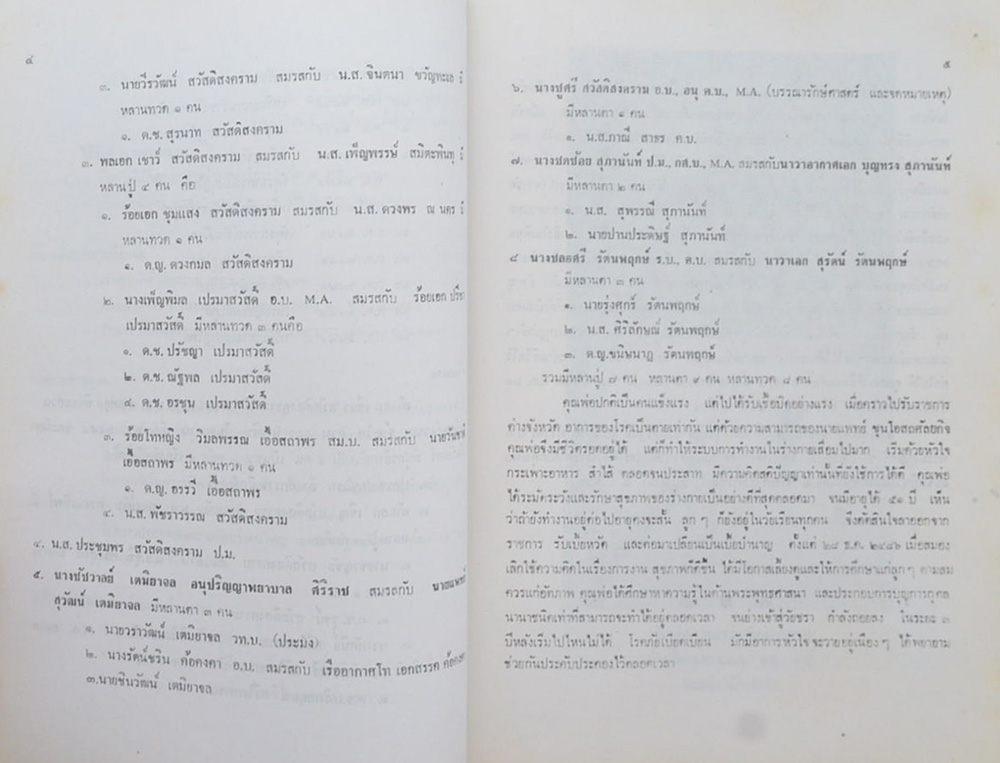 ๔
๓. นายวีรวัฒน์ สวัสดิสงคราม สมรสกับ น.ส.จินตนา ขวัญทะเล มี
หลานทวด ๑ คน
๑. ด.ช.สุรนาท สวัสดิสงคราม
๓. พลเอก เชาว์ สวัสดิสงคราม สมรสกับ น.ส.เพ็ญพรรษ์ สมิตะพินทุ มี
หลานปู่ ๔ คน คือ
๑. ร้อยเอก ชุมแสง สวัสดิสงคราม สมรสกับ น.ส.ดวงพร ณ นคร มี
หลานทวด ๑ คน
๑. ด.ญ.ดวงกมล สวัสดิสงคราม
๒. นางเพ็ญพิมล เปรมาสวัสดิ์ อ.บ. M.A. สมรสกับ ร้อยเอก
เปรมาสวัสดิ์ มีหลานทวด ๓ คนคือ
๑. ด.ช.ปรัชญา เปรมาสวัสดิ์
๒. ด.ช.ณัฐพล เปรมาสวัสดิ์
๔. ด.ช.อรชุน เปรมาสวัสดิ์
๓. ร้อยโทหญิง วิมลพรรณ เอื้อสถาพร สม.บ. สมรสกับ นาย
เอื้อสถาพร มีหลานทวด ๑ คน
๑. ด.ญ.อรรวี เอื้อสถาพร
๔. น.ส.พัชราวรรณ สวัสดิสงคราม
๔. น.ส.ประชุมพร สวัสดิสงคราม ป.ม.
๕. นางชัชวาลย์ เตมิยาจล อนุปริญญาพยาบาล ศิริราช สมรสกับ นายแพทย์
สุวัฒน์ เตมิยาจล มีหลานตา ๓ คน
๑. นายวราวัฒน์ เตมิยาจล วท.บ. (ประมง)
๒. นางรัตน์ชริน ค้อคงคา อ.บ. สมรสกับ เรืออากาศโท เอกสรรค ค้อคงคา
๓.นายชินวัฒน์ เตมิยาจล
๕
๖. นางชูศรี สวัสดิสงคราม อ.บ., อนุ ค.บ., M.A. (บรรณารักษ์ศาสตร์ และจดหมายเหตุ)
มีหลานตา ๑ คน
๑. น.ส.ภาณี สาขร ค.บ.
๗. นางชดช้อย สุภานันท์ ป.ม., กศ.บ., M.A. สมรสกับนาวาอากาศเอก บุญทรง สุภานันท์
มีหลานตา ๒ คน
๑. น.ส. สุพรรณี สุภานันท์
๒. นายปานประดิษฐ์ สุภานันท์
๘ นางชลอศรี รัตนพฤกษ์ ร.บ., ค.บ. สมรสกับ นาวาเอก สุรัตน์ รัตนพฤกษ์
มีหลานตา ๓ คน
๑. นายรุ่งศุกร์ รัตนพฤกษ์
๒. น.ส.ศิริลักษณ์ รัตนพฤกษ์
๓. ด.ญ.ขนิษนาฎ รัตนพฤกษ์
รวมมีหลานปู่ ๗ คน หลานตา ๙ คน หลานทวด ๘ คน
คุณพ่อปกติเป็นคนแข็งแรง แต่ไปได้รับเชื้อบิดอย่างแรง เมื่อคราวไปรับราชการ
ต่างจังหวัด อาการของโรคเป็นตายเท่ากัน แต่ด้วยความสามารถของนายแพทย์ ขุนโอสถศัลยกิจ
คุณพ่อจึงมีชีวิตรอดอยู่ได้ แต่ก็ทำให้ระบบการทำงานในร่างกายเสื่อมไปมาก เริ่มด้วยหัวใจ
กระเพาะอาหาร ลำไส้ ตลอดจนประสาท มีความคิดสติปัญญาเท่านั้นที่ยังใช้การได้ดี คุณพ่อ
ได้ระมัดระวังและรักษาสุขภาพของร่างกายเป็นอย่างดีที่สุดตลอดมา จนมีอายุได้ ๕๑ ปี เห็น
ว่าถ้ายังทำงานอยู่ต่อไปอายุคงจะสั้น ลูก ๆ ก็ยังอยู่ในวัยเรียนทุกคน จึงตัดสินใจลาออกจาก
ราชการ รับเบี้ยหวัด และต่อมาเปลี่ยนเป็นเบี้ยบำนาญ ตั้งแต่ ๒๘ ธ.ค. ๒๔๘๖ เมื่อสมอง
เลิกใช้ความคิดในเรื่องการงาน สุขภาพก็ดีขึ้น ได้มีโอกาสเลี้ยงดูและให้การศึกษาแก่ลูกๆ ตามสม
ควรแก่อัตภาพ คุณพ่อได้ศึกษาหาความรู้ในด้านพระพุทธศาสนา และประกอบการบุญการกุศล
นานาชนิดเท่าที่สามารถจะทำได้อยู่ตลอดเวลา จนย่างเข้าสู่วัยชรา กำลังถอยลง ในระยะ ๓
ปีหลังเริ่มไปไหนไม่ได้ โรคภัยเบียดเบียน มักมีอาการหัวใจ จะวายอยู่เนืองๆ ได้พยายาม
ช่วยกันประคับประคองไว้ตลอดเวลา